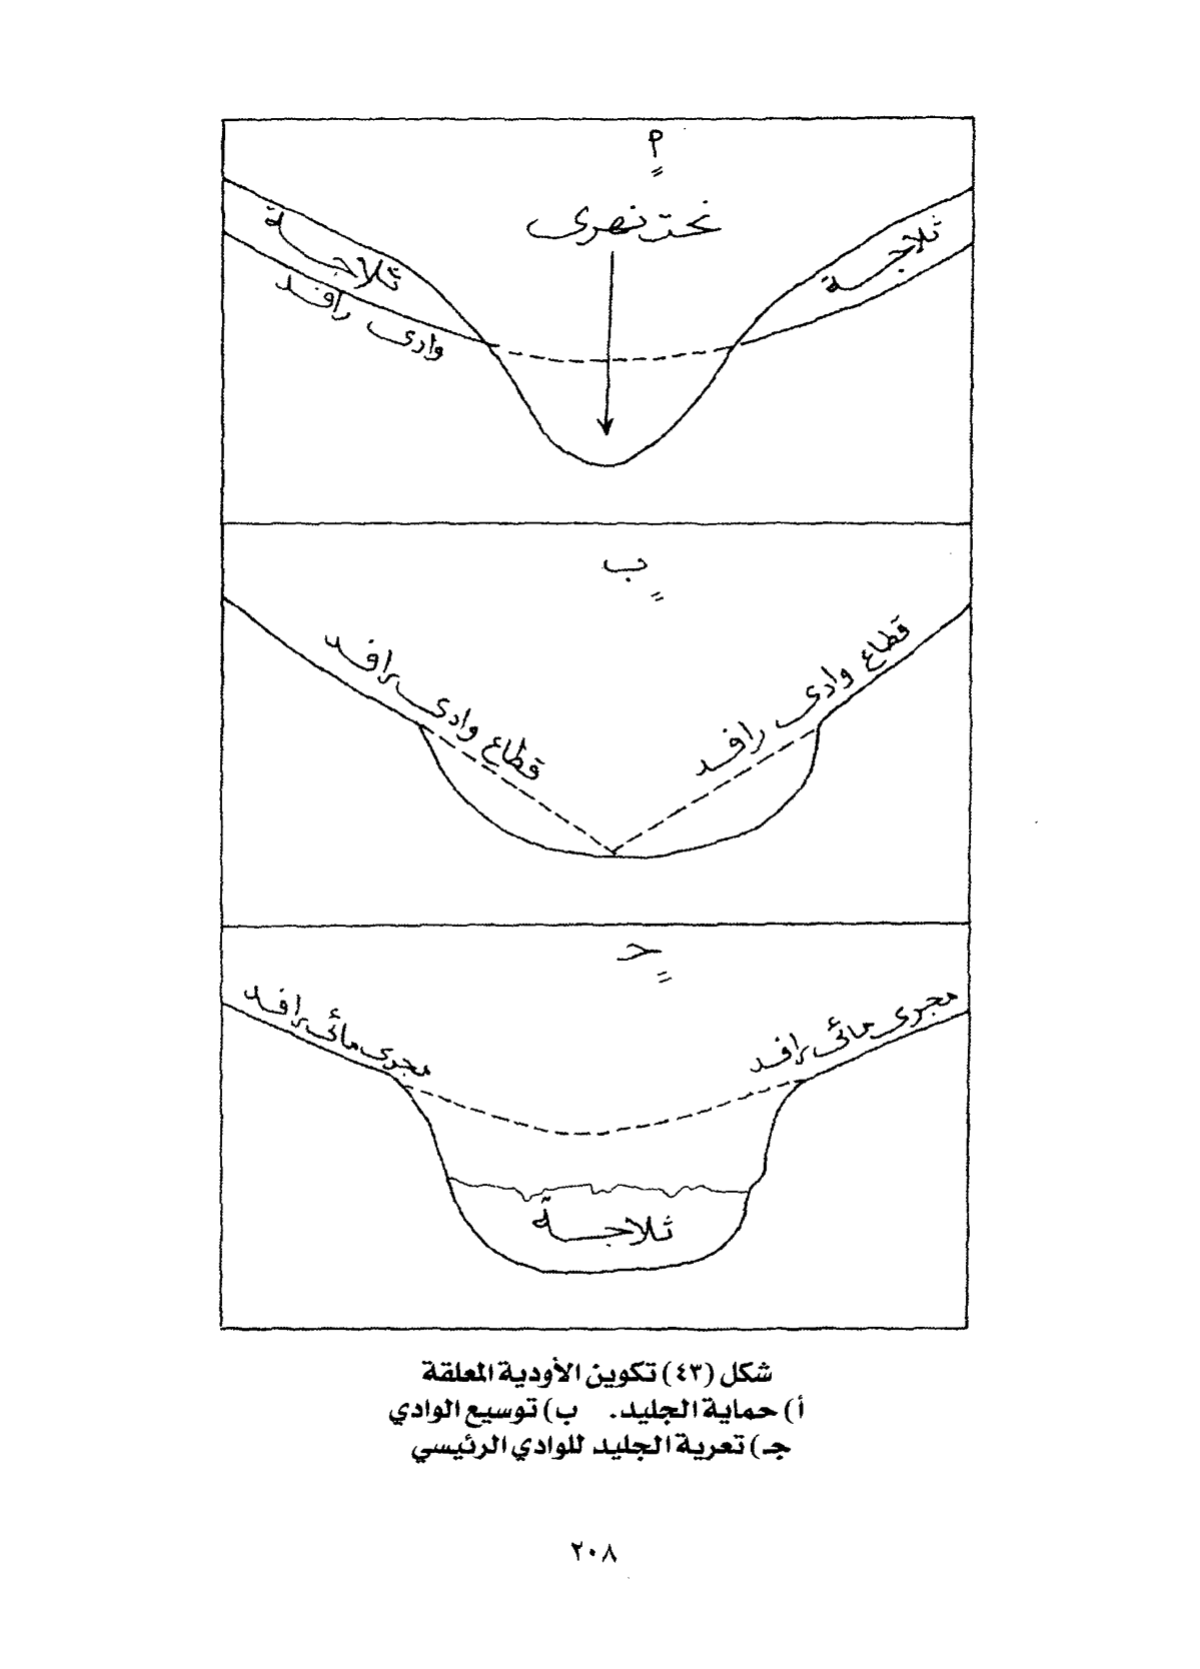 أ
نحت نهرى
ثلاجة
ثلاجة
وادى رافد
ب
قطاع وادى رافد
قطاع وادى رافد
جـ
مجرى مائى رافد
مجرى مائى رافد
ثلاجة
شكل (٤٣) تكوين الأودية المعلقة
أ) حماية الجليد. ب) توسيع الوادي
جـ) تعرية الجليد للوادي الرئيسي
٢٠٨